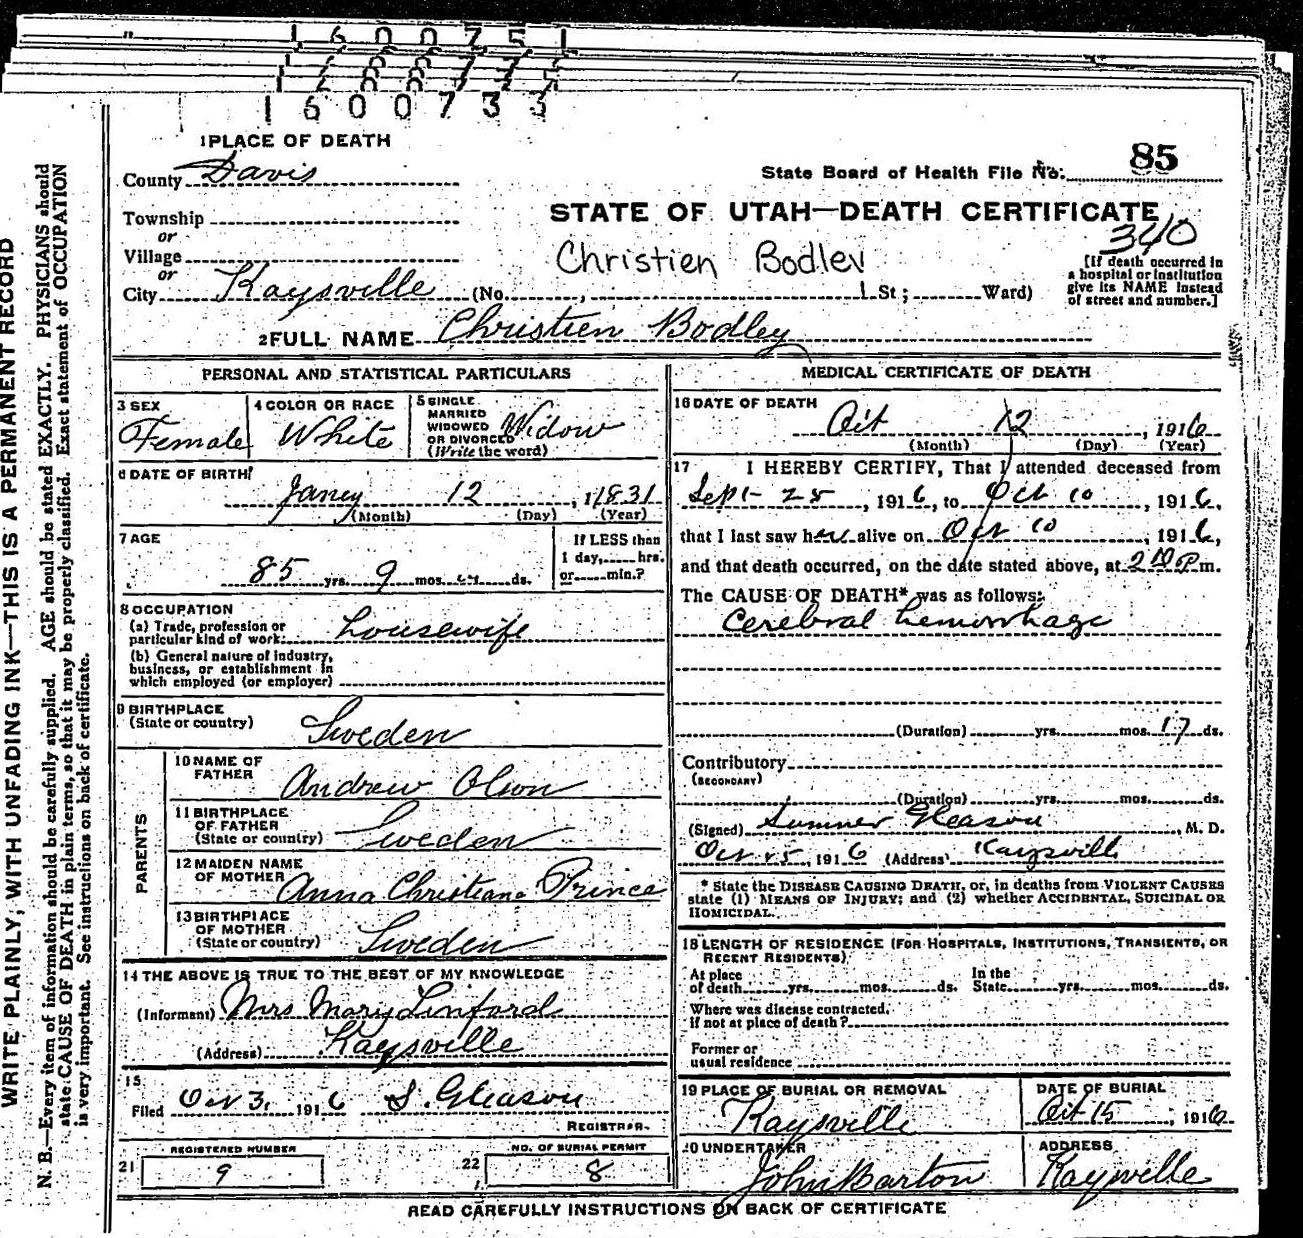 1600751
1600733
WRITE PLAINLY, WITH UNFADING INK—THIS IS A PERMANENT RECORD
N. B.—Every item of information should be carefully supplied. AGE should be stated EXACTLY. PHYSICIANS should
state CAUSE OF DEATH in plain terms, so that it may be properly classified. Exact statement of OCCUPATION
is very important. See instructions on back of certificate.
1 PLACE OF DEATH
County Davis
State Board of Health File No. 85
Township
or
STATE OF UTAH—DEATH CERTIFICATE
340
Village
or
Christien Bodley
[If death occurred in
a hospital or institution
give its NAME instead
of street and number.]
City Kaysville (No. , St ; Ward)
2 FULL NAME Christien Bodley
PERSONAL AND STATISTICAL PARTICULARS
3 SEX
Female
4 COLOR OR RACE
White
5 SINGLE
MARRIED
WIDOWED
OR DIVORCED
(Write the word)
Widow
6 DATE OF BIRTH
Janey 12, 1831
(Month) (Day) (Year)
7 AGE
85 yrs. 9 mos. ds.
If LESS than
1 day, hrs.
or min.?
8 OCCUPATION
(a) Trade, profession or
particular kind of work: housewife
(b) General nature of industry,
business, or establishment in
which employed (or employer)
9 BIRTHPLACE
(State or country) Sweden
PARENTS
10 NAME OF
FATHER Andrew Olson
11 BIRTHPLACE
OF FATHER
(State or country) Sweden
12 MAIDEN NAME
OF MOTHER Anna Christiana Prince
13 BIRTHPLACE
OF MOTHER
(State or country) Sweden
14 THE ABOVE IS TRUE TO THE BEST OF MY KNOWLEDGE
(Informant) Mrs Mary Linford
(Address) Kaysville
15
Filed Oct 31 1916 S. Gleason
REGISTRAR.
21 REGISTERED NUMBER
9
22 NO. OF BURIAL PERMIT
8
MEDICAL CERTIFICATE OF DEATH
16 DATE OF DEATH
Oct 12, 1916
(Month) (Day) (Year)
17 I HEREBY CERTIFY, That I attended deceased from
Sept 25, 1916, to Oct 10, 1916,
that I last saw her alive on Oct 10, 1916,
and that death occurred, on the date stated above, at 2 P m.
The CAUSE OF DEATH* was as follows:
Cerebral hemorrhage
(Duration) yrs. mos. 17 ds.
Contributory
(SECONDARY)
(Duration) yrs. mos. ds.
(Signed) Sumner Gleason, M. D.
Oct 25, 1916 (Address) Kaysville
* State the DISEASE CAUSING DEATH, or, in deaths from VIOLENT CAUSES
state (1) MEANS OF INJURY; and (2) whether ACCIDENTAL, SUICIDAL OR
HOMICIDAL.
18 LENGTH OF RESIDENCE (FOR HOSPITALS, INSTITUTIONS, TRANSIENTS, OR
RECENT RESIDENTS)
At place
of death yrs. mos. ds.
In the
State yrs. mos. ds.
Where was disease contracted,
if not at place of death?
Former or
usual residence
19 PLACE OF BURIAL OR REMOVAL
Kaysville
DATE OF BURIAL
Oct 15, 1916
20 UNDERTAKER
John Barton
ADDRESS
Kaysville
READ CAREFULLY INSTRUCTIONS ON BACK OF CERTIFICATE